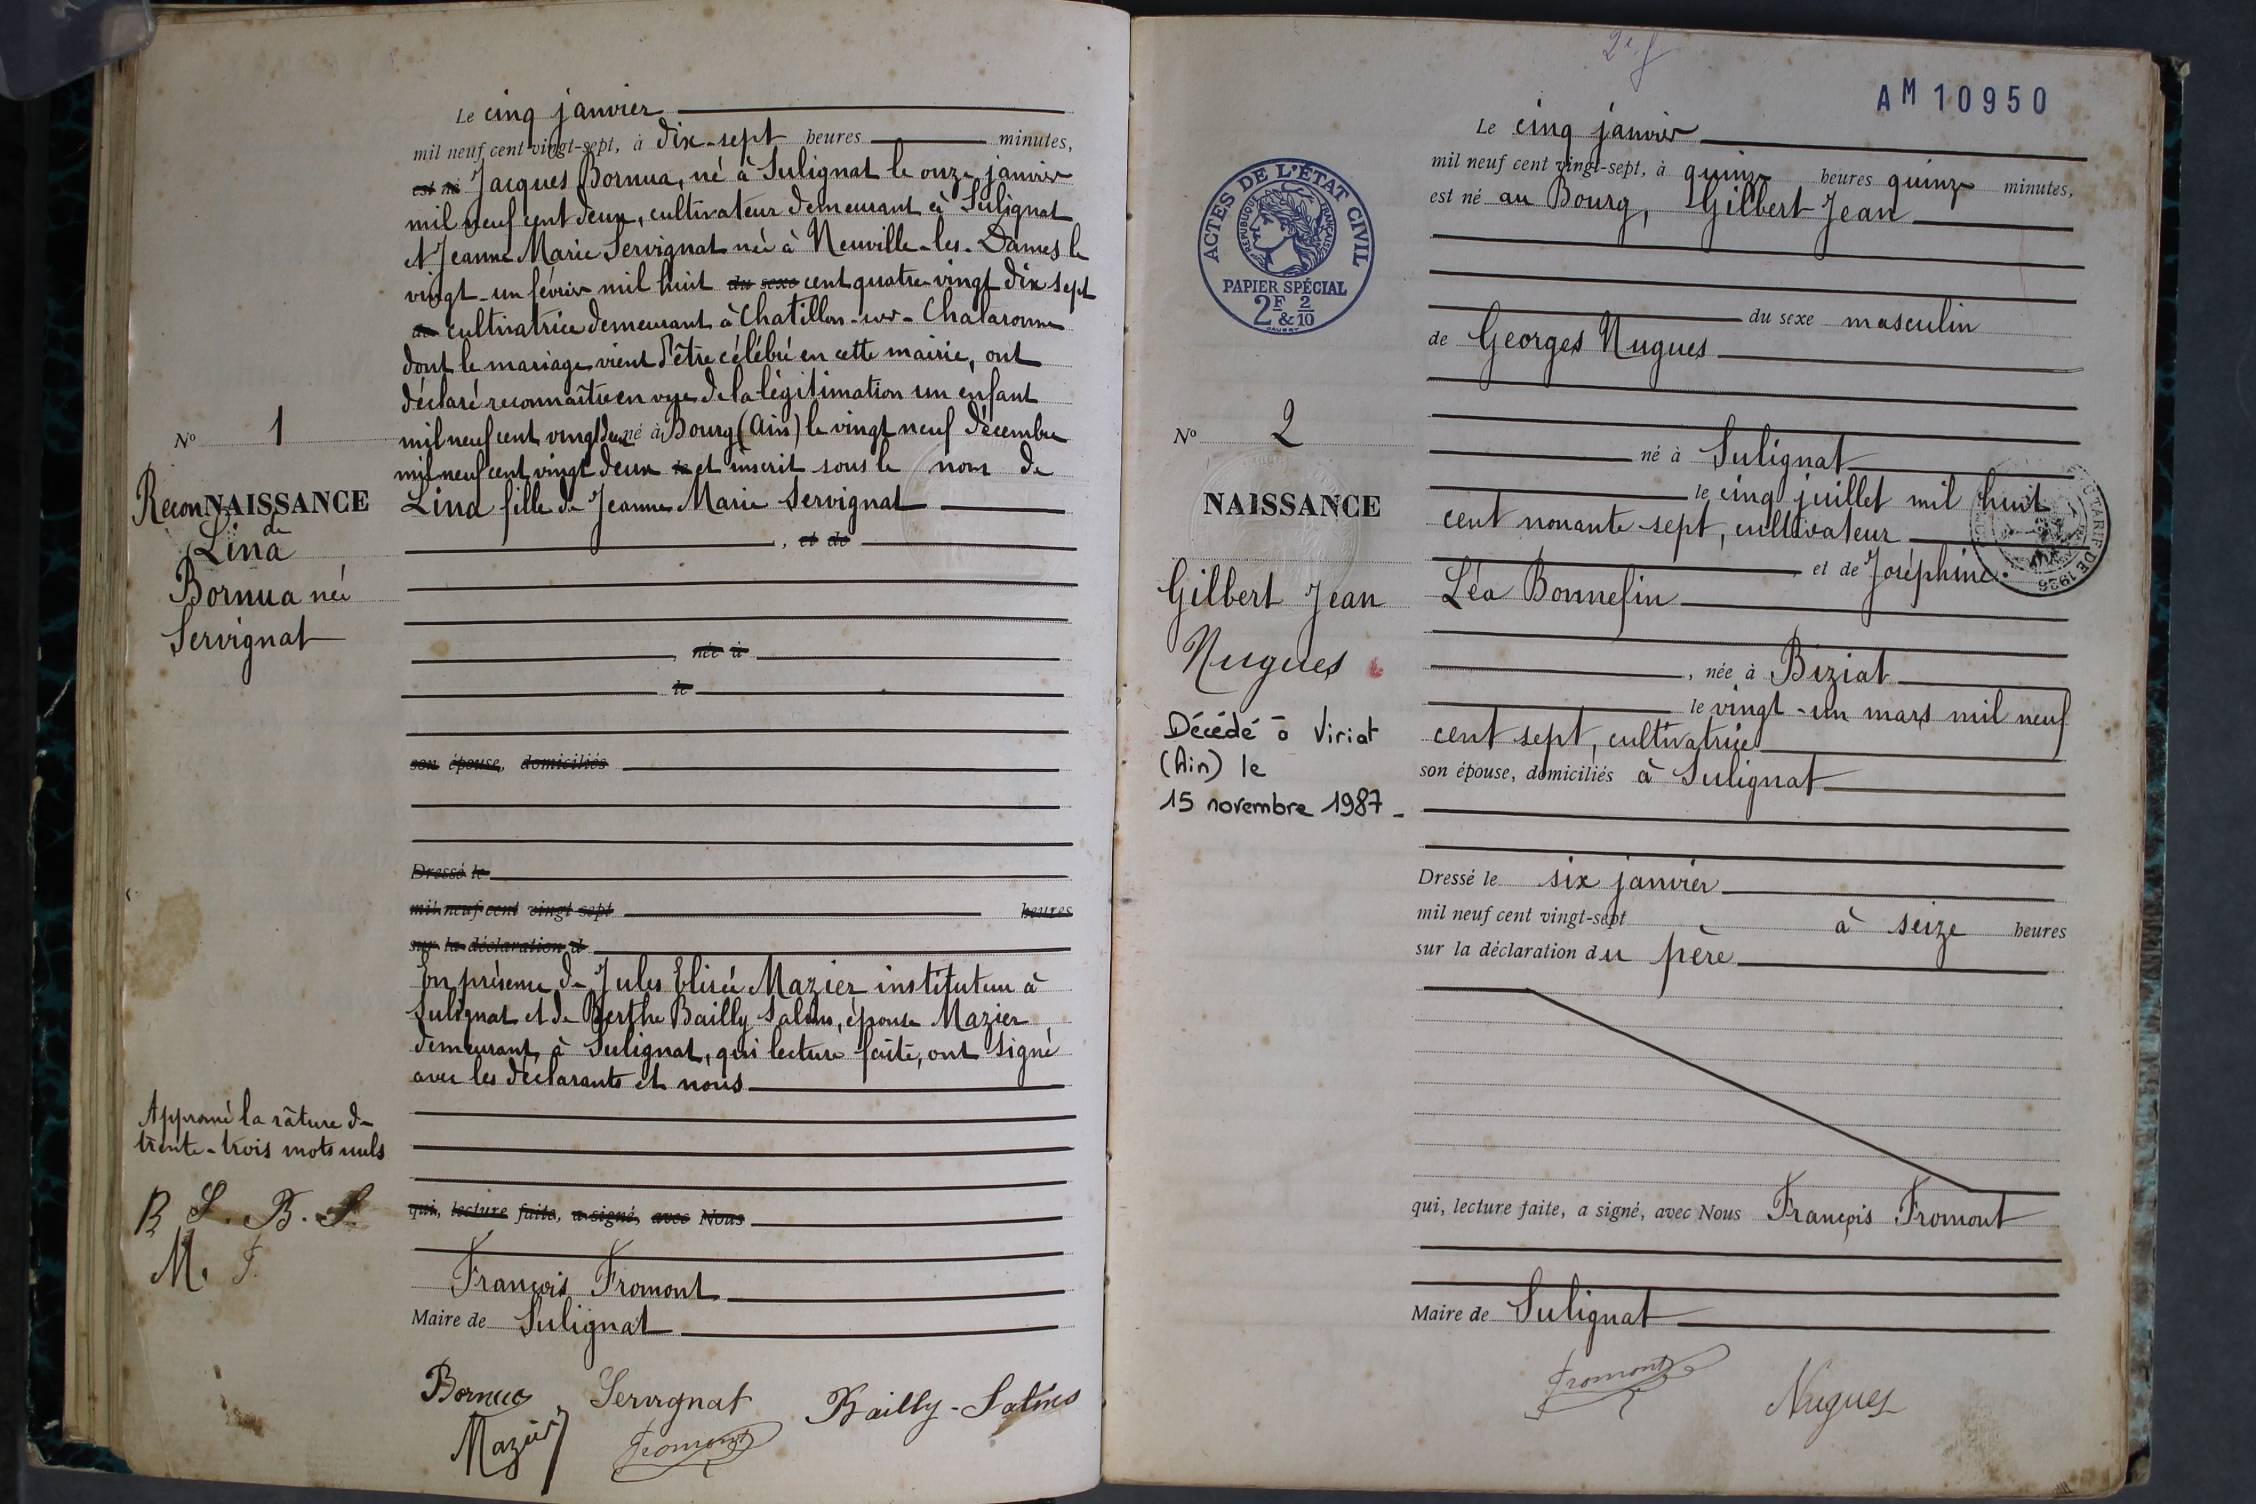 Le cinq janvier
mil neuf cent vingt-sept, à dix-sept heures minutes,
est né Jacques Bornua, né à Sulignat le onze janvier
mil neuf cent deux, cultivateur demeurant à Sulignat
et Jeanne Marie Servignat née à Neuville-les-Dames le
vingt-un février mil huit du sexe cent quatre vingt dix sept
de cultivatrice demeurant à Chatillon-sur-Chalaronne
dont le mariage vient d'être célébré en cette mairie, ont
déclaré reconnaître en vue de la légitimation un enfant
No 1
mil neuf cent vingt deux né à Bourg (Ain) le vingt neuf décembre
mil neuf cent vingt deux le et inscrit sous le nom de
ReconNAISSANCE
Lina fille de Jeanne Marie Servignat
de
Lina
, et de
Bornua née
Servignat
, née à
le
son épouse, domiciliés
Dressé le
mil neuf cent vingt-sept heures
sur la déclaration d
En présence de Jules Elisée Mazier instituteur à
Sulignat et de Berthe Bailly-Salins, épouse Mazier
demeurant à Sulignat, qui lecture faite, ont signé
avec les déclarants et nous
Approuvé la râture de
trente-trois mots nuls
B S. B. S.
M. F.
qui, lecture faite, a signé, avec Nous
François Fromont
Maire de Sulignat
Bornua Servignat Bailly-Salins
Mazier Fromont
AM 10950
ACTES DE L'ÉTAT CIVIL
RÉPUBLIQUE FRANÇAISE
PAPIER SPÉCIAL
2F & 2/10
Le cinq janvier
mil neuf cent vingt-sept, à quinze heures quinze minutes,
est né au Bourg, Gilbert Jean
du sexe masculin
de Georges Nugues
No 2
né à Sulignat
NAISSANCE
le cinq juillet mil huit
cent nonante-sept, cultivateur
TARIF DE 1926
et de Joséphine
Gilbert Jean
Nugues
Léa Bonnefin
, née à Biziat
le vingt-un mars mil neuf
cent sept, cultivatrice
Décédé à Viriat
(Ain) le
15 novembre 1987-
son épouse, domiciliés à Sulignat
Dressé le six janvier
mil neuf cent vingt-sept à seize heures
sur la déclaration du père
qui, lecture faite, a signé, avec Nous François Fromont
Maire de Sulignat
Fromont Nugues